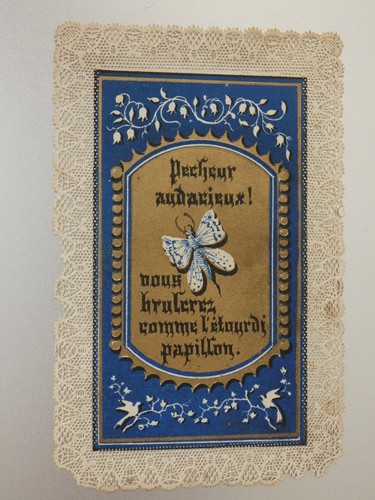 Pecheur
audacieux!
vous
brulerez
comme l'étourdi
papillon.